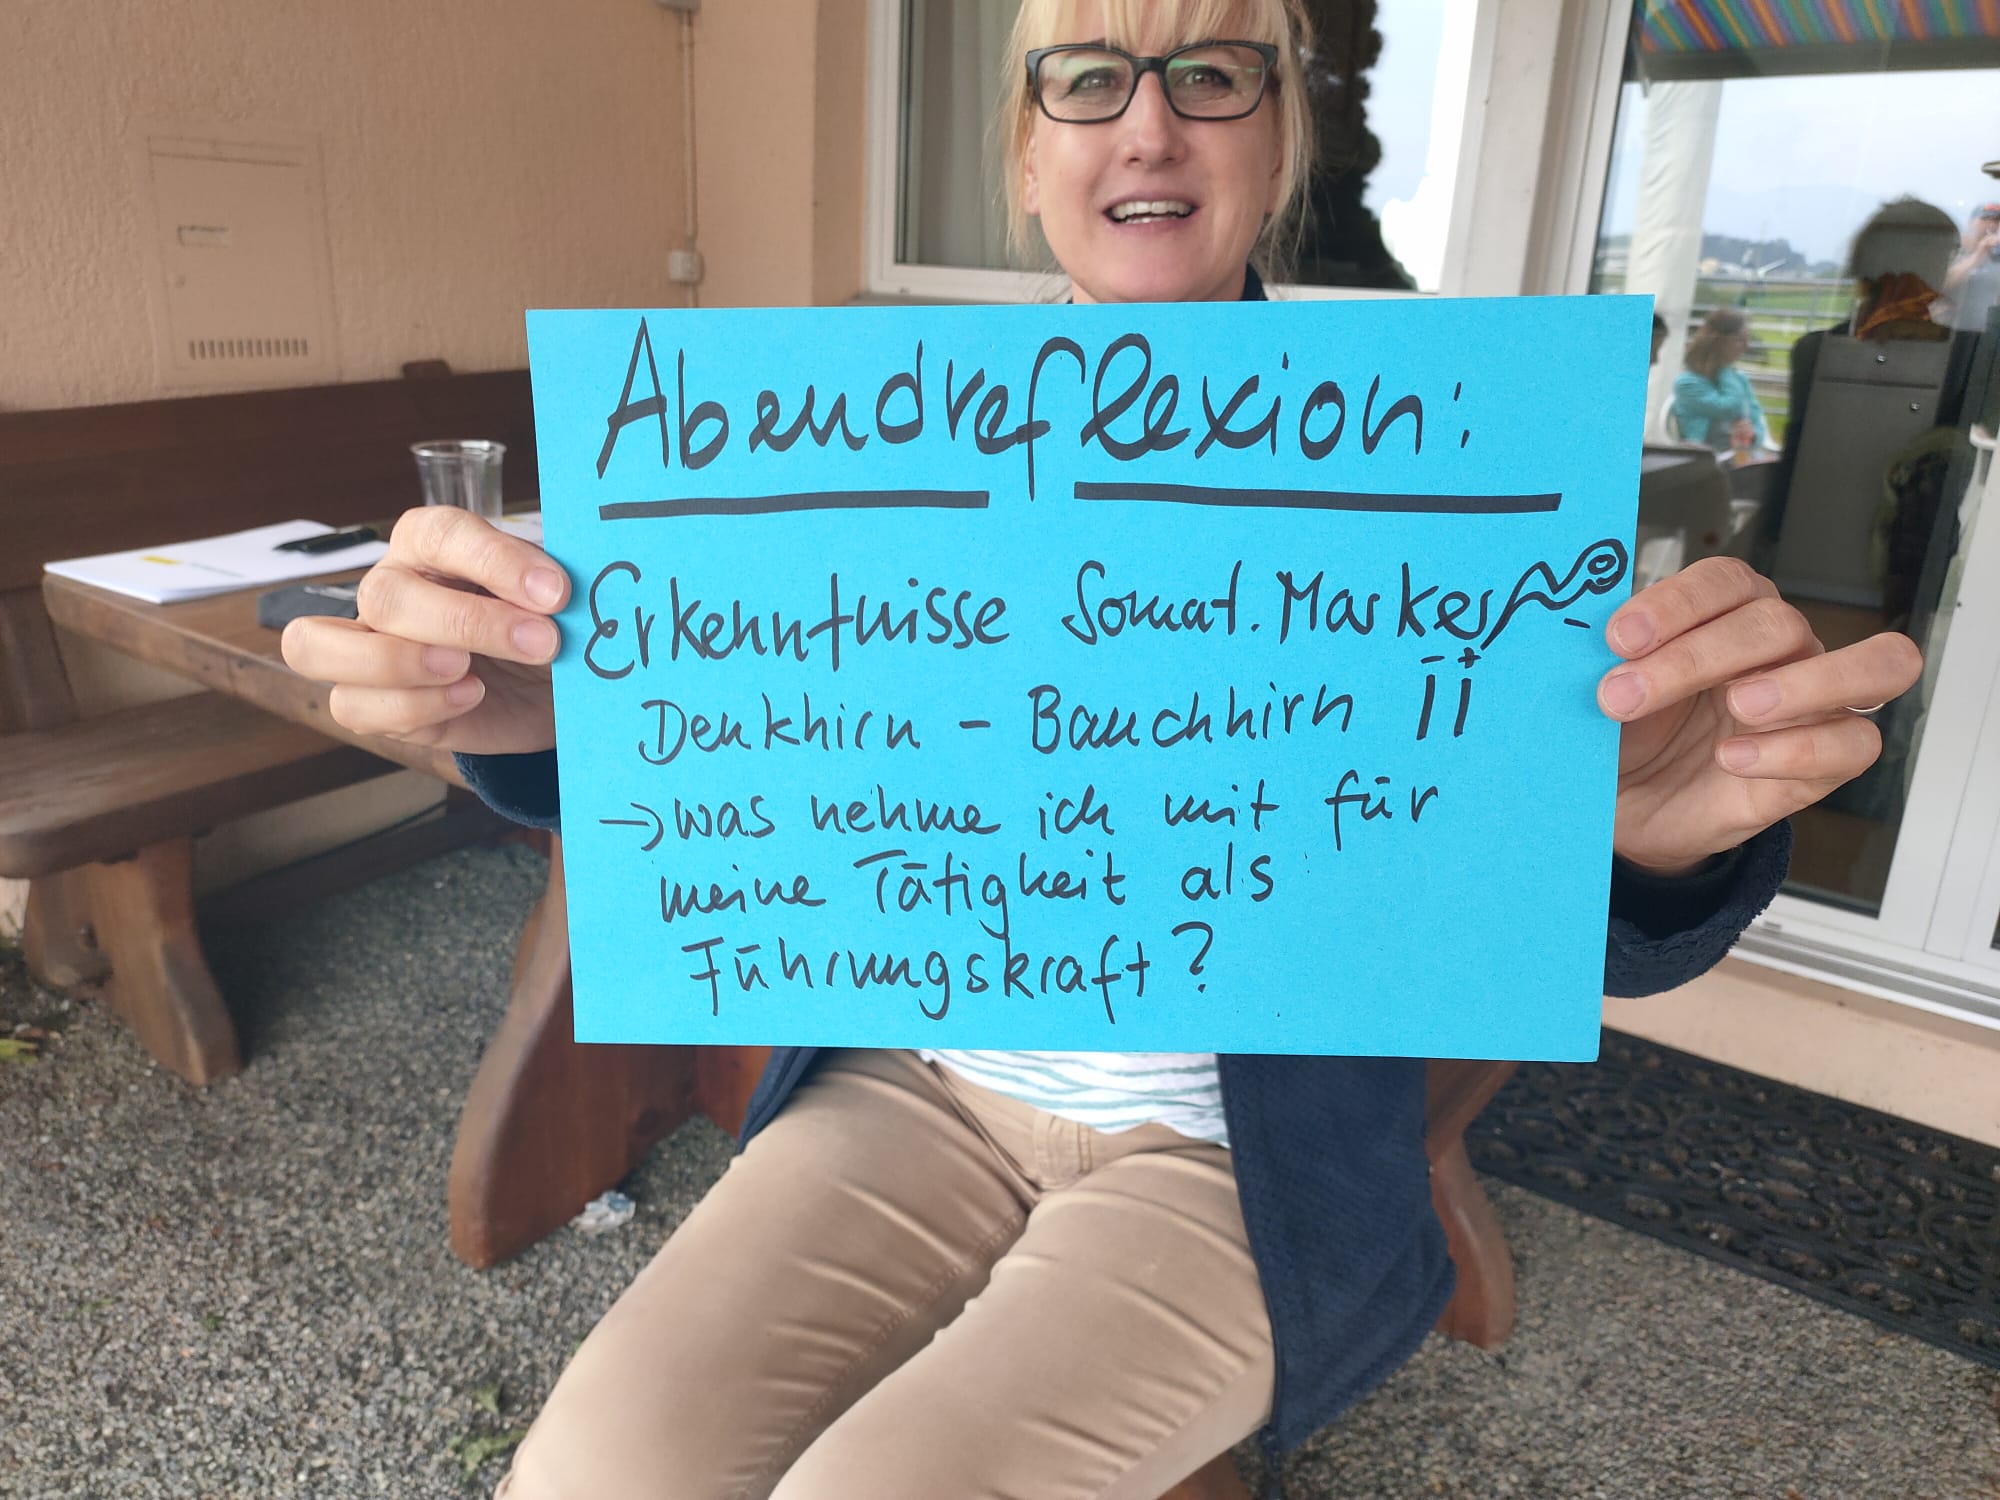 Abendreflexion:
Erkenntnisse Somat. Marker
- +
Denkhirn - Bauchhirn
→ was nehme ich mit für
meine Tätigkeit als
Führungskraft?